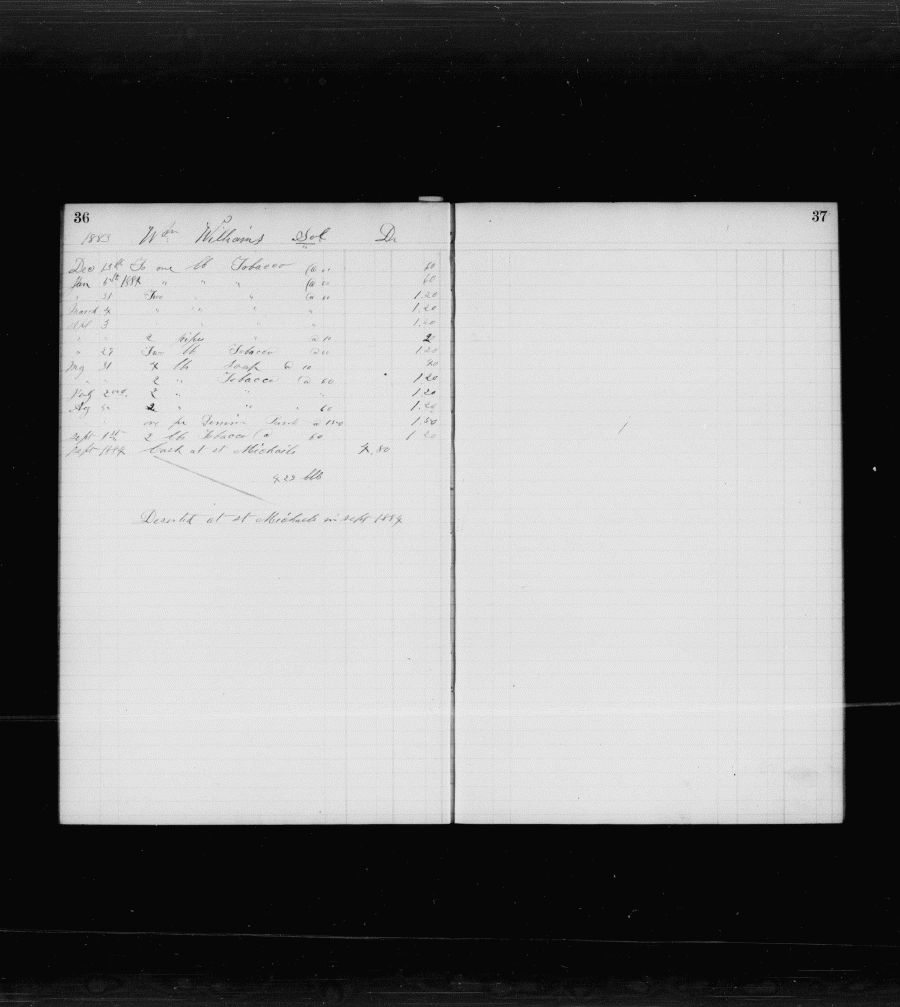 36
1883 Wm Williams Sol Dr
Dec 13th To one lb Tobacco @ " 60
Jan 5th 1884 " " " @ 60 60
" 31 Two " " @ 60 1.20
March 4 " " " " 1.20
" 3 " " " " 1.20
" " 2 @ 10 2
" 28 Two lb Tobacco @ 60 1.20
31 4 lb Soap @ 10 40
" " 2 " Tobacco @ 60 1.20
2nd 2 " " " 1.20
2 " " " 60 1.20
" " one pr Denim @ 150 1.50
Sept 1st 2 lb Tobacco @ 60 1 20
Sept 1884 Cash at st Michaels 4.80
at st Michaels in sept 1884
37